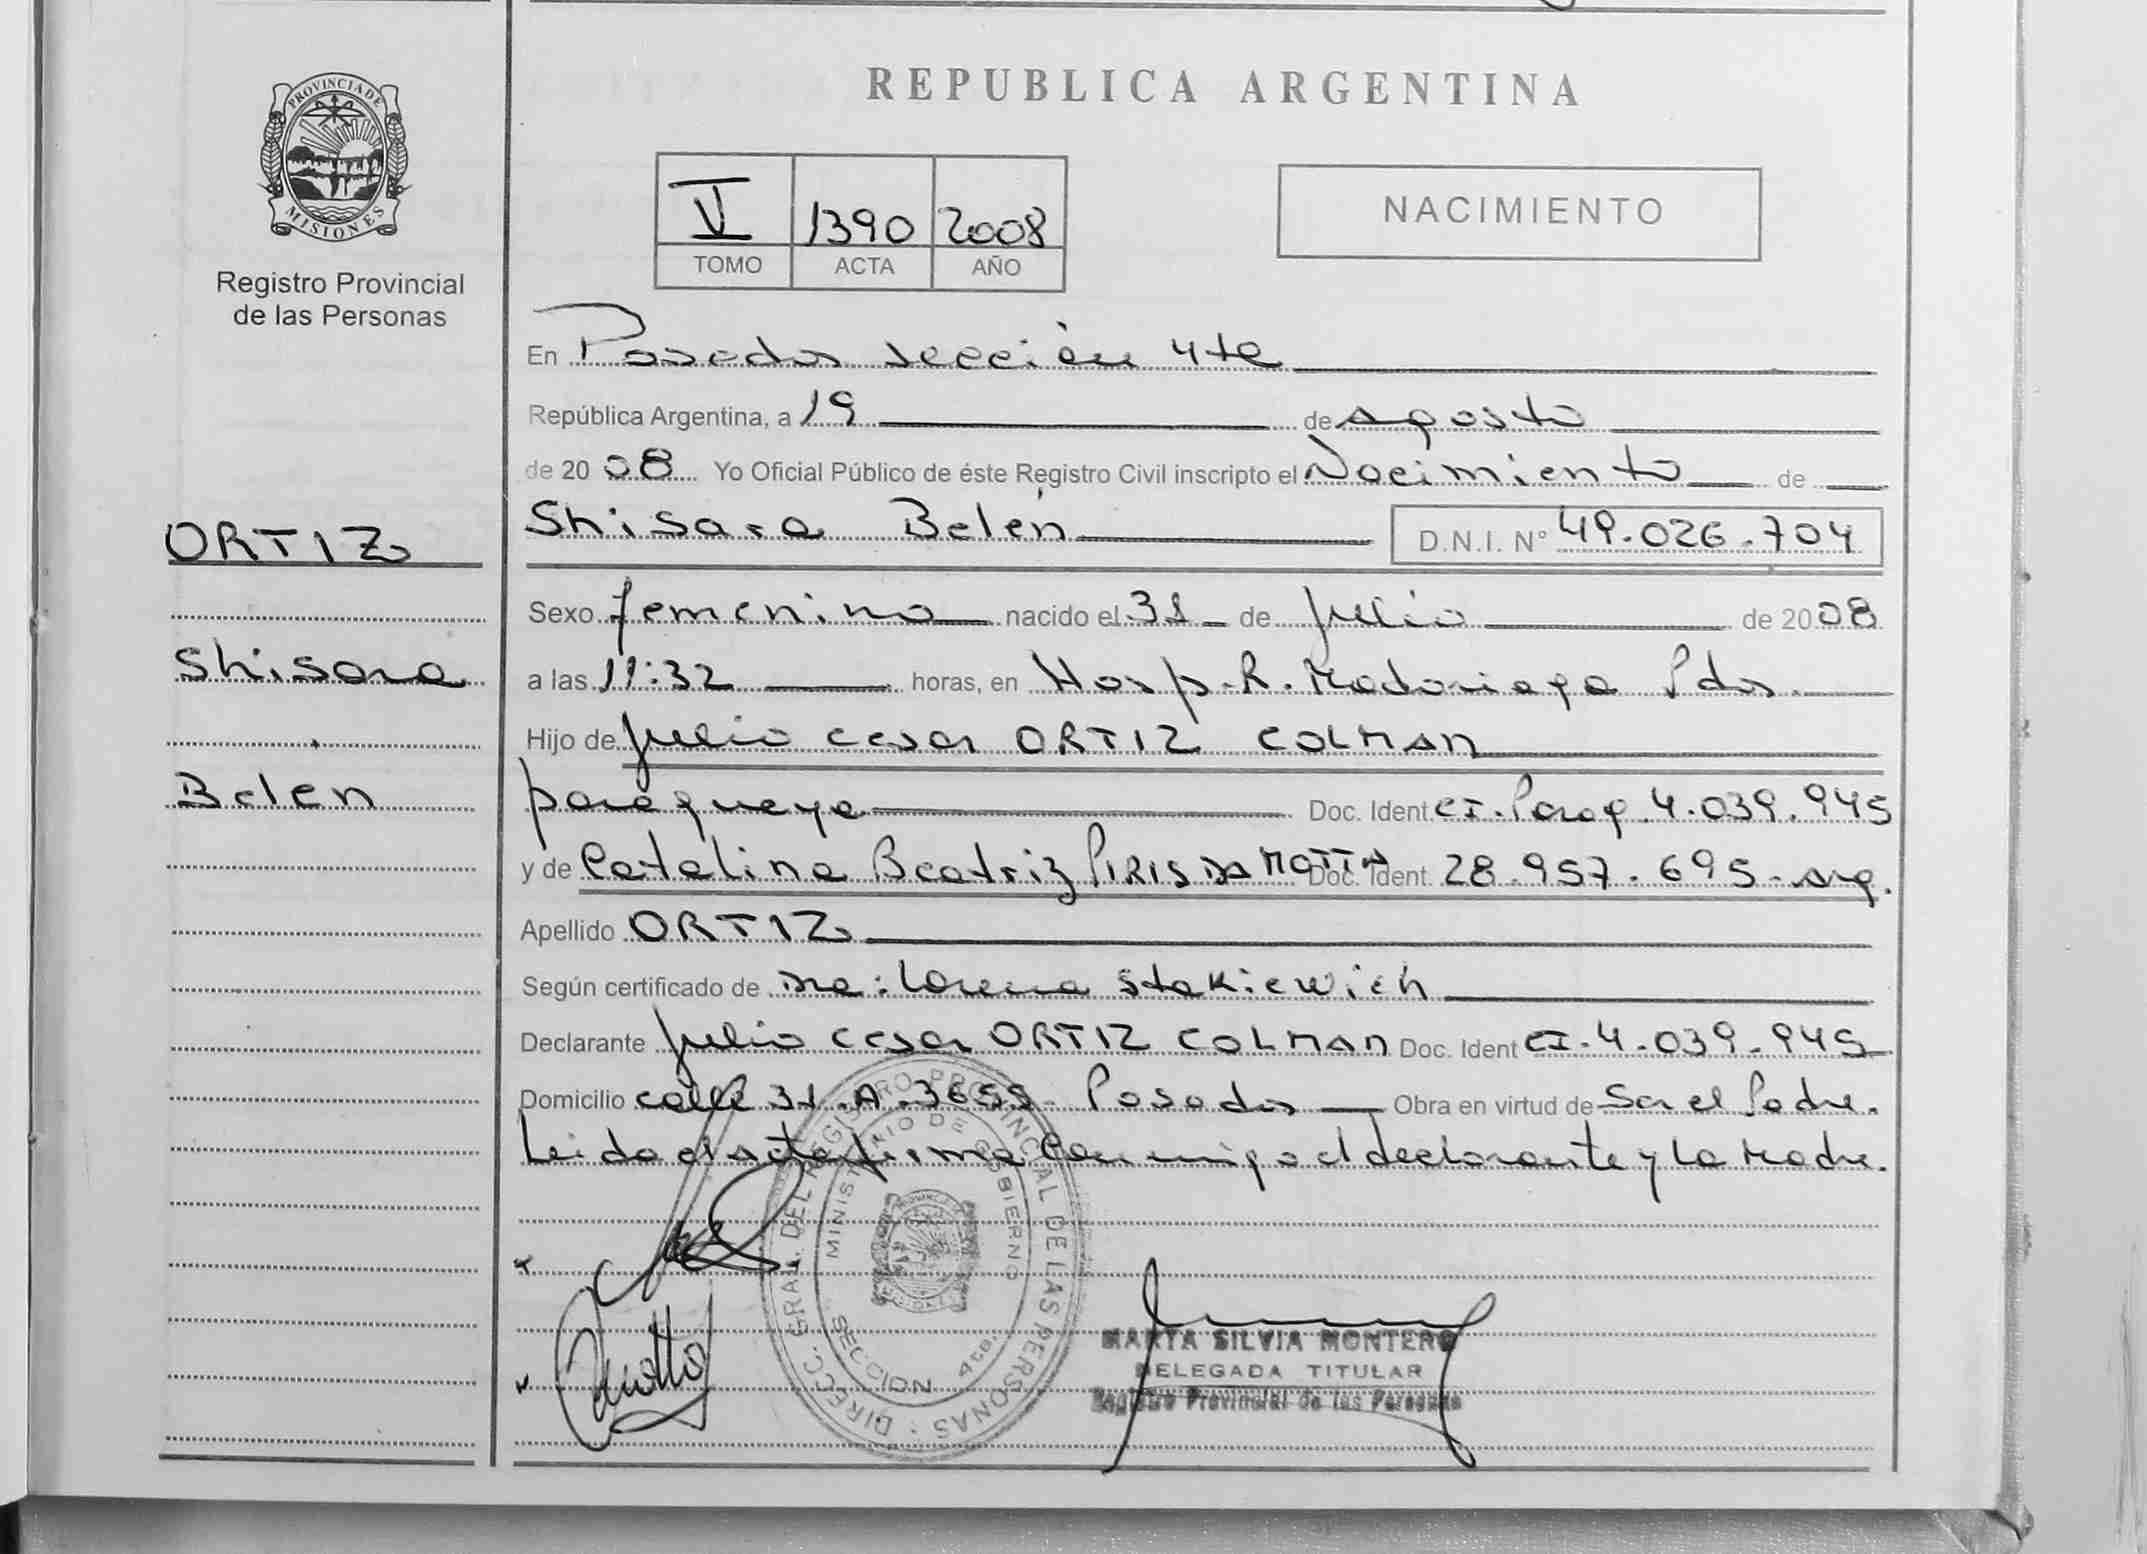 PROVINCIA DE
MISIONES
Registro Provincial
de las Personas
ORTIZ
Shisara
Belen
REPUBLICA ARGENTINA
V 1390 2008
TOMO ACTA AÑO
NACIMIENTO
En Posadas sección 4ta
República Argentina, a 19 de agosto
de 20 08 Yo Oficial Público de éste Registro Civil inscripto el Nacimiento de
Shisara Belén D.N.I. N° 49.026.704
Sexo femenino nacido el 31 de julio de 2008
a las 11:32 horas, en Hosp. R. Madariaga Pdas.
Hijo de Julio Cesar ORTIZ COLMAN
paraguaya Doc. Ident CI. Parag. 4.039.945
y de Catalina Beatriz PIRIS DA MOTTA Doc. Ident. 28.957.695 - arg.
Apellido ORTIZ
Según certificado de Dra: Lorena Stakiewich
Declarante Julio Cesar ORTIZ COLMAN Doc. Ident CI. 4.039.945
Domicilio calle 31.A.3655 Posadas Obra en virtud de Ser el Padre.
Leida el acta firma Conmigo el declarante y la Madre.
DIRECC. GRAL. DEL REGISTRO PROVINCIAL DE LAS PERSONAS
MINISTERIO DE GOBIERNO
SECCION 4ta.
MARTA SILVIA MONTERO
DELEGADA TITULAR
Registro Provincial de las Personas